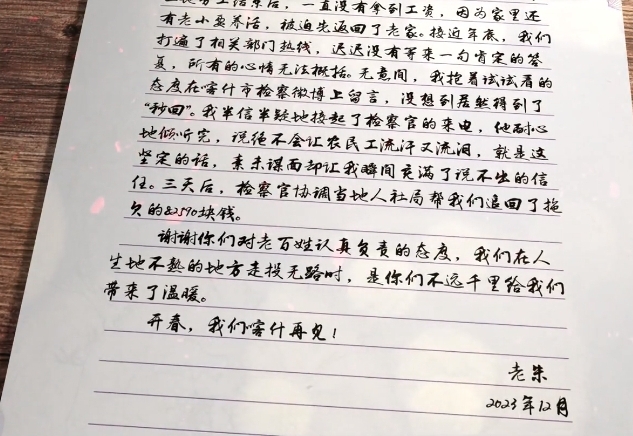 工地方工结束后，一直没有拿到工资，因为家里还
有老小要养活，被迫先返回了老家。接近年底，我们
打遍了相关部门热线，迟迟没有等来一句肯定的答
复，所有的心情无法概括。无意间，我抱着试试看的
态度在喀什市检察微博上留言，没想到居然得到了
“秒回”。我半信半疑地接起了检察官的来电，他耐心
地倾听完，说绝不会让农民工流汗又流泪，就是这
坚定的话，素未谋面却让我瞬间充满了说不出的信
任。三天后，检察官协调当地人社局帮我们追回了拖
欠的82590块钱。
谢谢你们对老百姓认真负责的态度，我们在人
生地不熟的地方走投无路时，是你们不远千里给我们
带来了温暖。
开春，我们喀什再见！
老朱
2023年12月